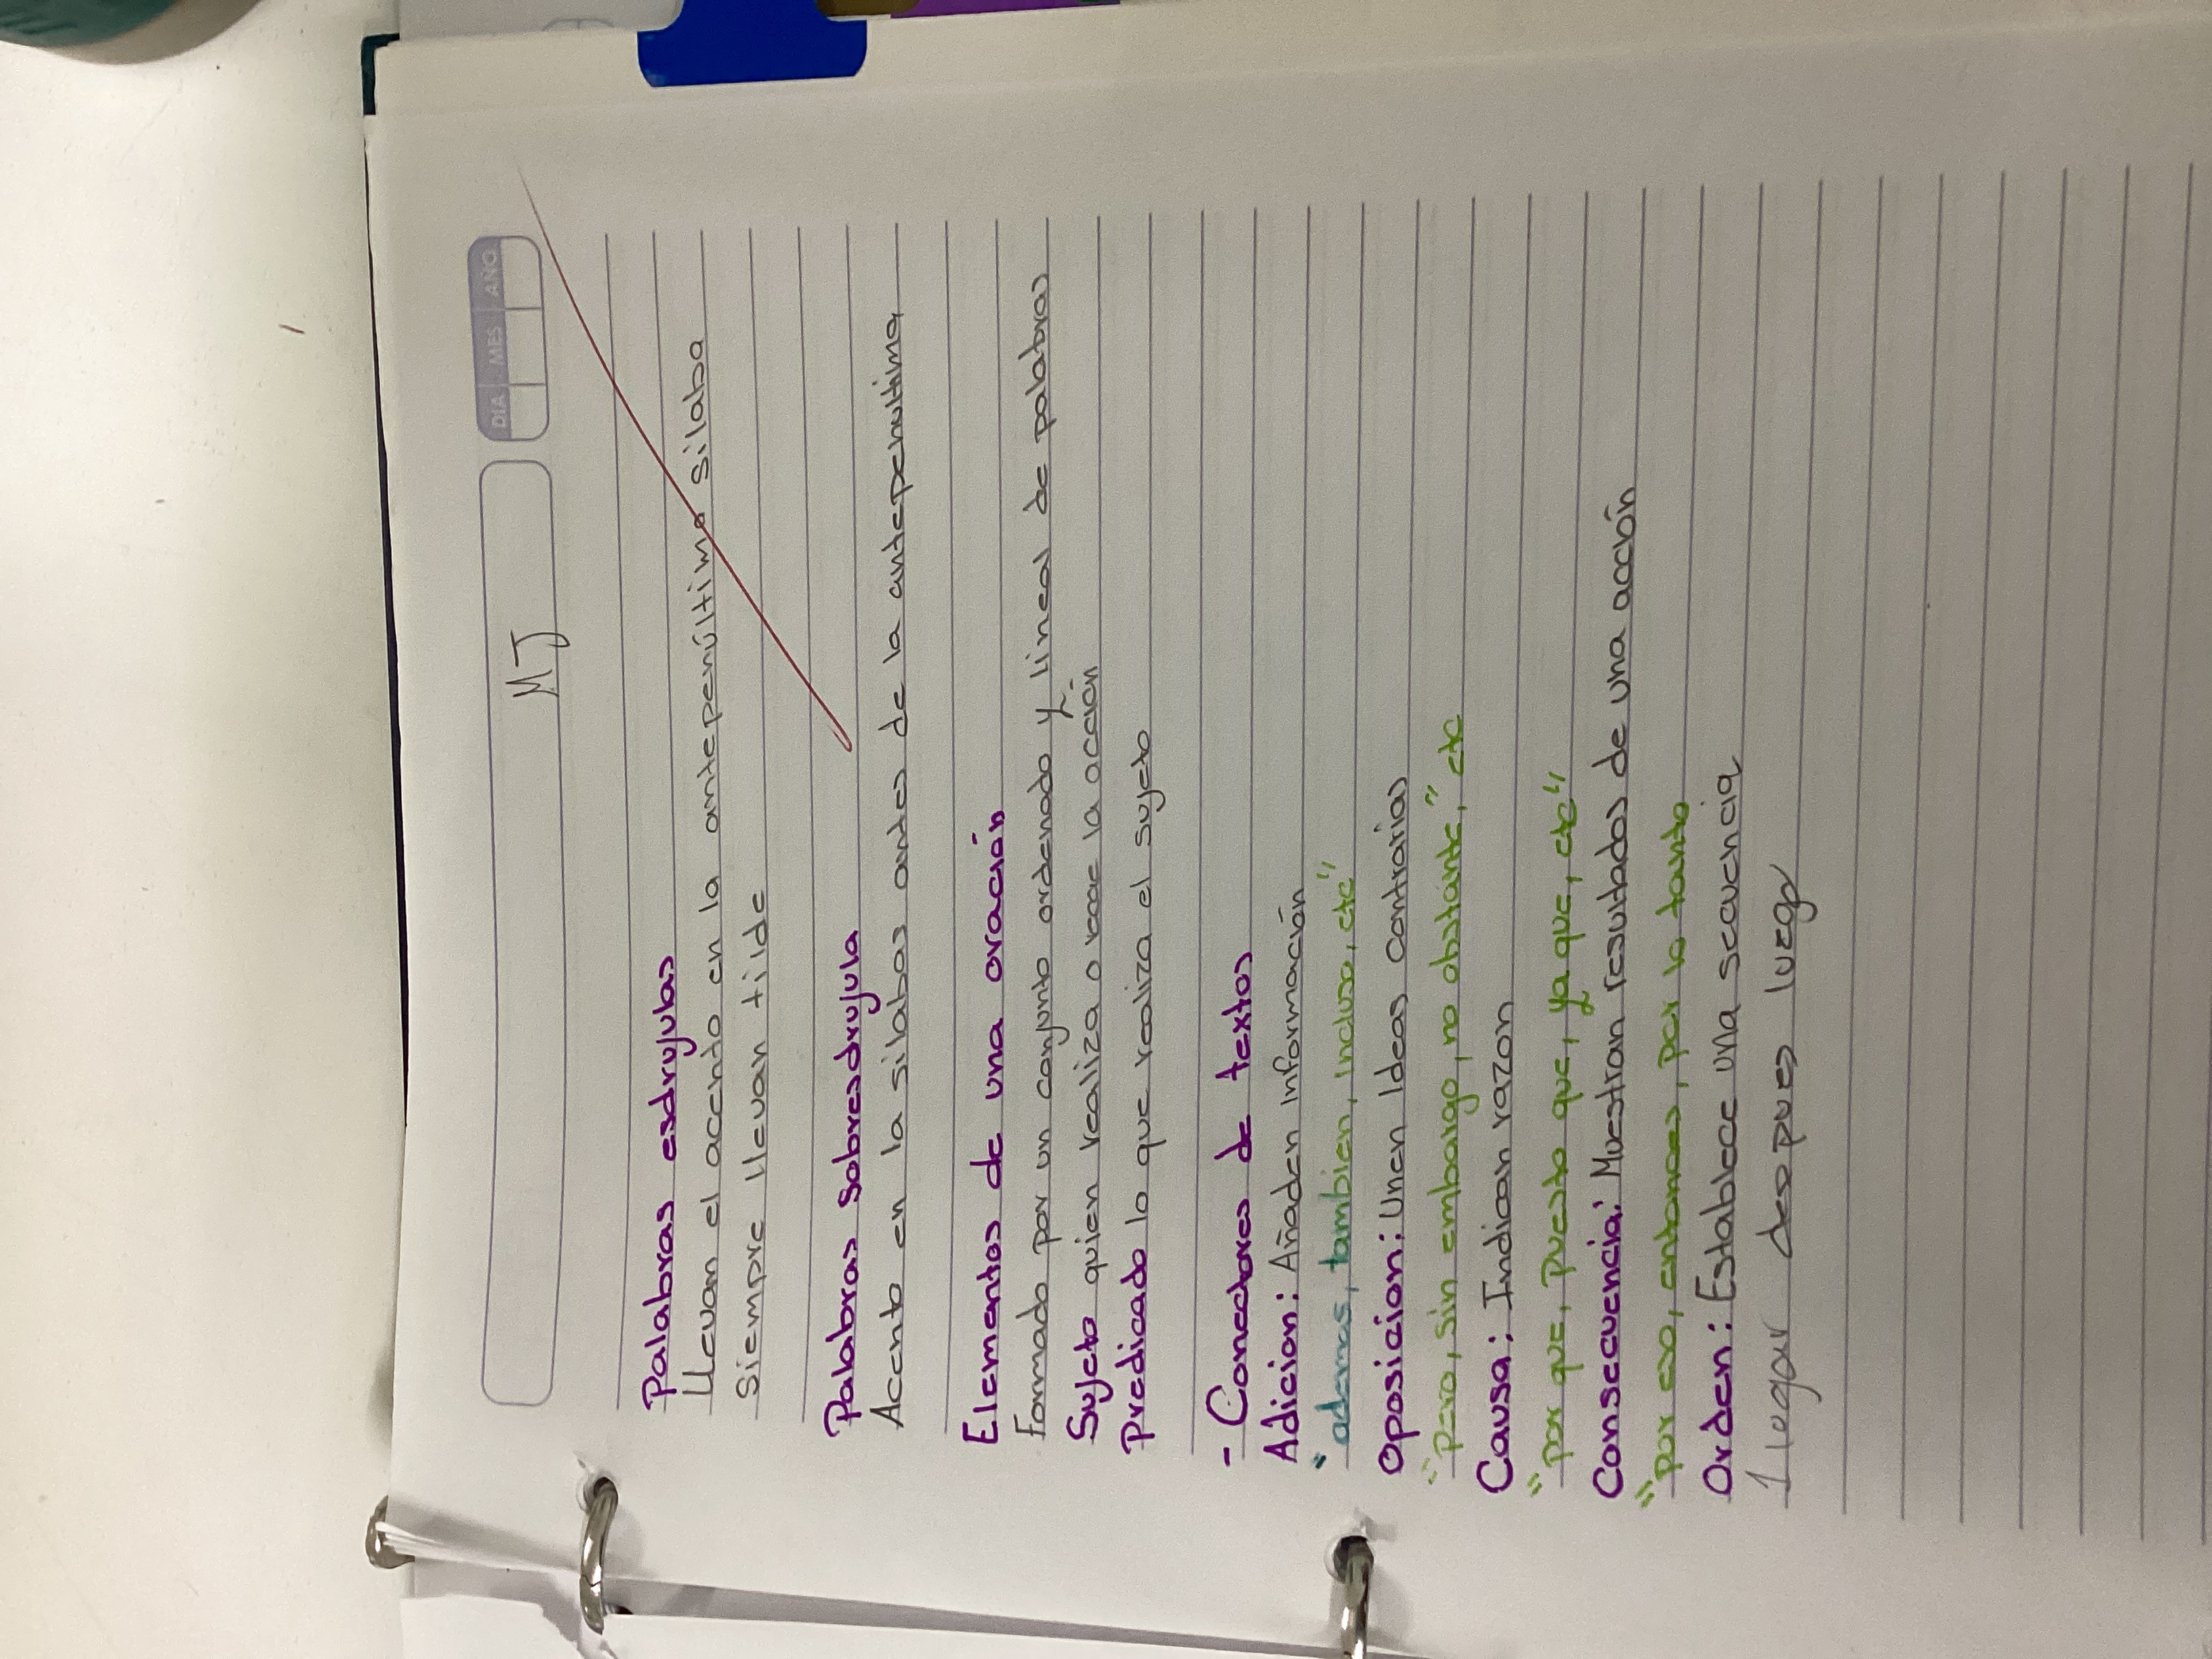 DÍA MES AÑO
MJ
Palabras esdrujulas
Llevan el acento en la antepenúltima silaba
siempre llevan tilde
Palabras sobresdrujula
Acento en la silabas antes de la antepenultima
Elementos de una oración
Formado por un conjunto ordenado y lineal de palabras
Sujeto quien realiza o recae la acción
Predicado lo que realiza el sujeto
- Conectores de textos
Adicion: Añaden información
"ademas, tambien, incluso, etc"
Oposicion: Unen Ideas contrarias
"Pero, sin embargo, no obstánte," etc
Causa: Indican razon
"por que, puesto que, ya que, etc"
Consecuencia: Muestran resultados de una acción
"por eso, entonces, por lo tanto
Orden: Establece una secuencia
1 lugar despues luego